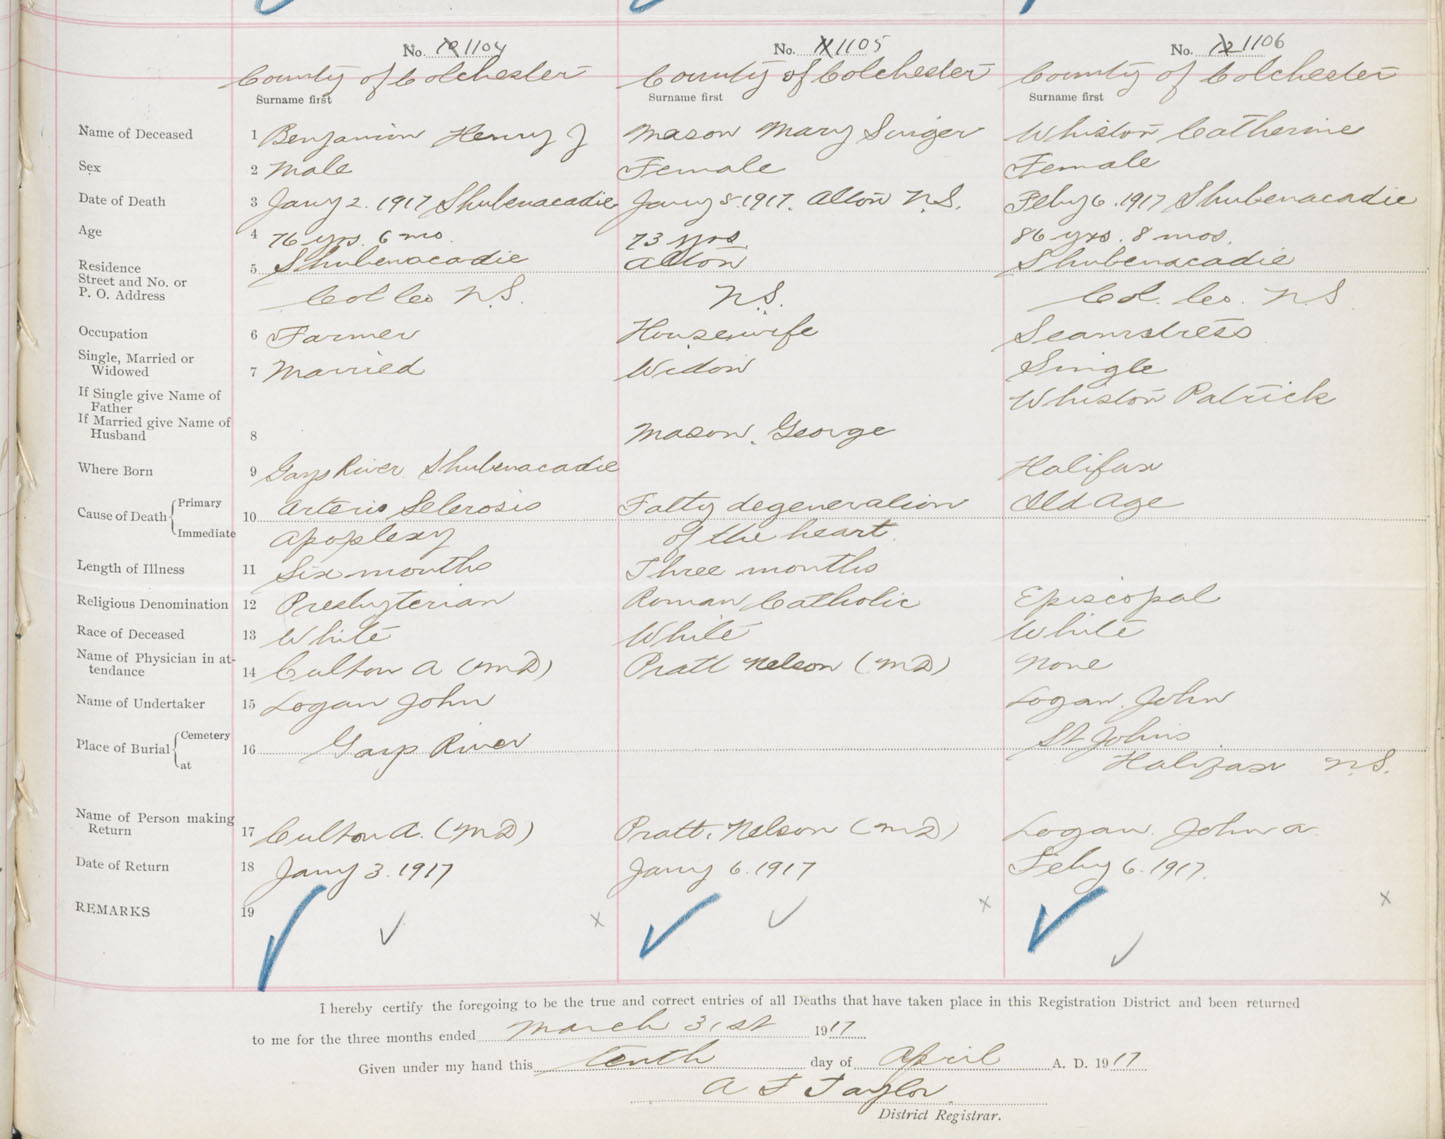 No. 10 1104 No. 11 1105 No. 12 1106
County of Colchester County of Colchester County of Colchester
Surname first Surname first Surname first
Name of Deceased 1 Benjamin Henry J Mason Mary Singer Whiston Catherine
Sex 2 Male Female Female
Date of Death 3 Jany 2. 1917 Shubenacadie Jany 5. 1917. Alton N.S. Feby 6. 1917 Shubenacadie
Age 4 76 yrs. 6 mo. 73 yrs 86 yrs. 8 mos.
Residence 5 Shubenacadie Alton Shubenacadie
Street and No. or
P. O. Address Col Co N.S. N.S. Col. Co. N S
Occupation 6 Farmer Housewife Seamstress
Single, Married or
Widowed 7 Married Widow Single
If Single give Name of
Father Whiston Patrick
If Married give Name of
Husband 8 Mason, George
Where Born 9 Gays River Shubenacadie Halifax
Cause of Death { Primary 10 Arterio Sclerosis Fatty degeneration Old Age
Immediate Apoplexy of the heart.
Length of Illness 11 Six months Three months
Religious Denomination 12 Presbyterian Roman Catholic Episcopal
Race of Deceased 13 White White White
Name of Physician in at-
tendance 14 Culton A (MD) Pratt Nelson (MD) None
Name of Undertaker 15 Logan John Logan, John
Place of Burial { Cemetery 16 Gays River St Johns
at Halifax N.S.
Name of Person making
Return 17 Culton A. (MD) Pratt, Nelson (MD) Logan. John A
Date of Return 18 Jany 3. 1917 Jany 6. 1917 Feby 6. 1917.
REMARKS 19
I hereby certify the foregoing to be the true and correct entries of all Deaths that have taken place in this Registration District and been returned
to me for the three months ended March 31st 1917
Given under my hand this tenth day of April A. D. 1917
A F Taylor
District Registrar.